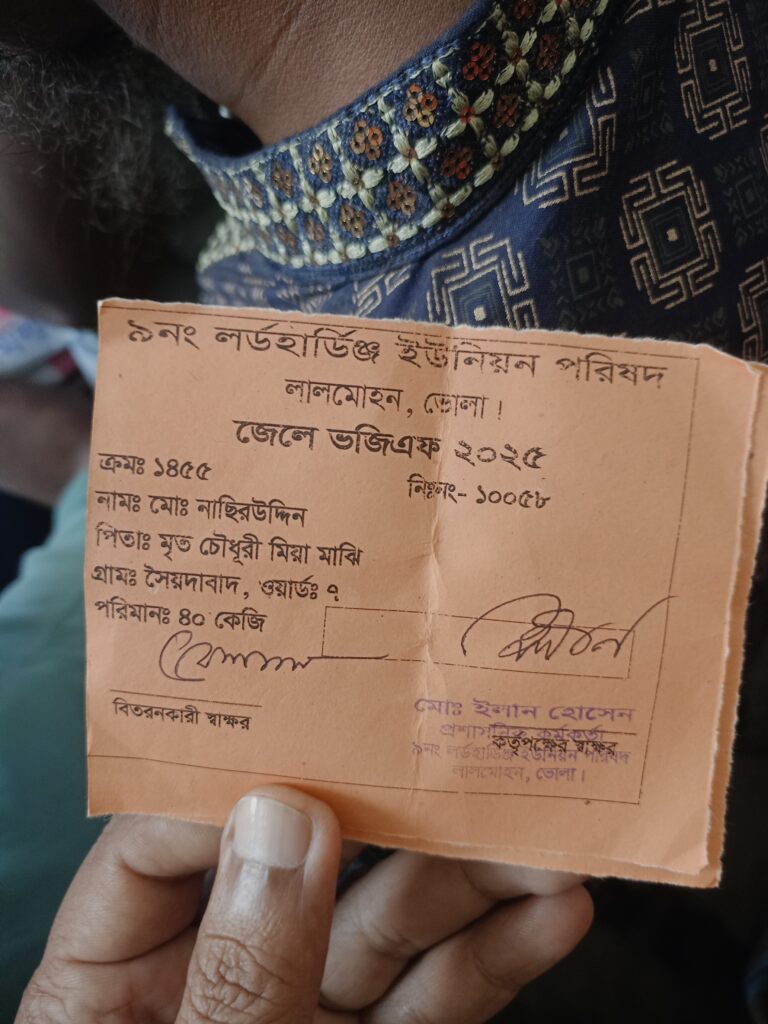 ৯নং লর্ডহার্ডিঞ্জ ইউনিয়ন পরিষদ
লালমোহন, ভোলা।
জেলে ভজিএফ ২০২৫
ক্রমঃ ১৪৫৫
নিঃনং- ১০০৫৮
নামঃ মোঃ নাছিরউদ্দিন
পিতাঃ মৃত চৌধূরী মিয়া মাঝি
গ্রামঃ সৈয়দাবাদ, ওয়ার্ডঃ ৭
পরিমানঃ ৪০ কেজি
বিতরনকারী স্বাক্ষর
মোঃ ইলান হোসেন
প্রশাসনিক কর্মকর্তা
কর্তৃপক্ষের স্বাক্ষর
৯নং লর্ডহার্ডিঞ্জ ইউনিয়ন পরিষদ
লালমোহন, ভোলা।